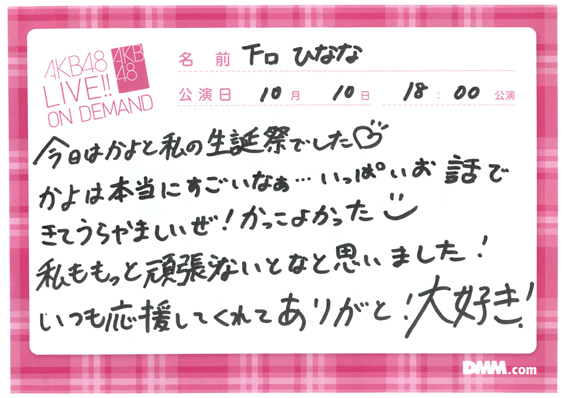 AKB48
LIVE!!
ON DEMAND
AKB
48
名前 下口 ひなな
公演日 10月 10日 18:00 公演
今日はかよと私の生誕祭でした♡
かよは本当にすごいなぁ…いっぱいお話で
きてうらやましいぜ!かっこよかった
私ももっと頑張ないとなと思いました!
いつも応援してくれてありがと!大好き!
DMM.com